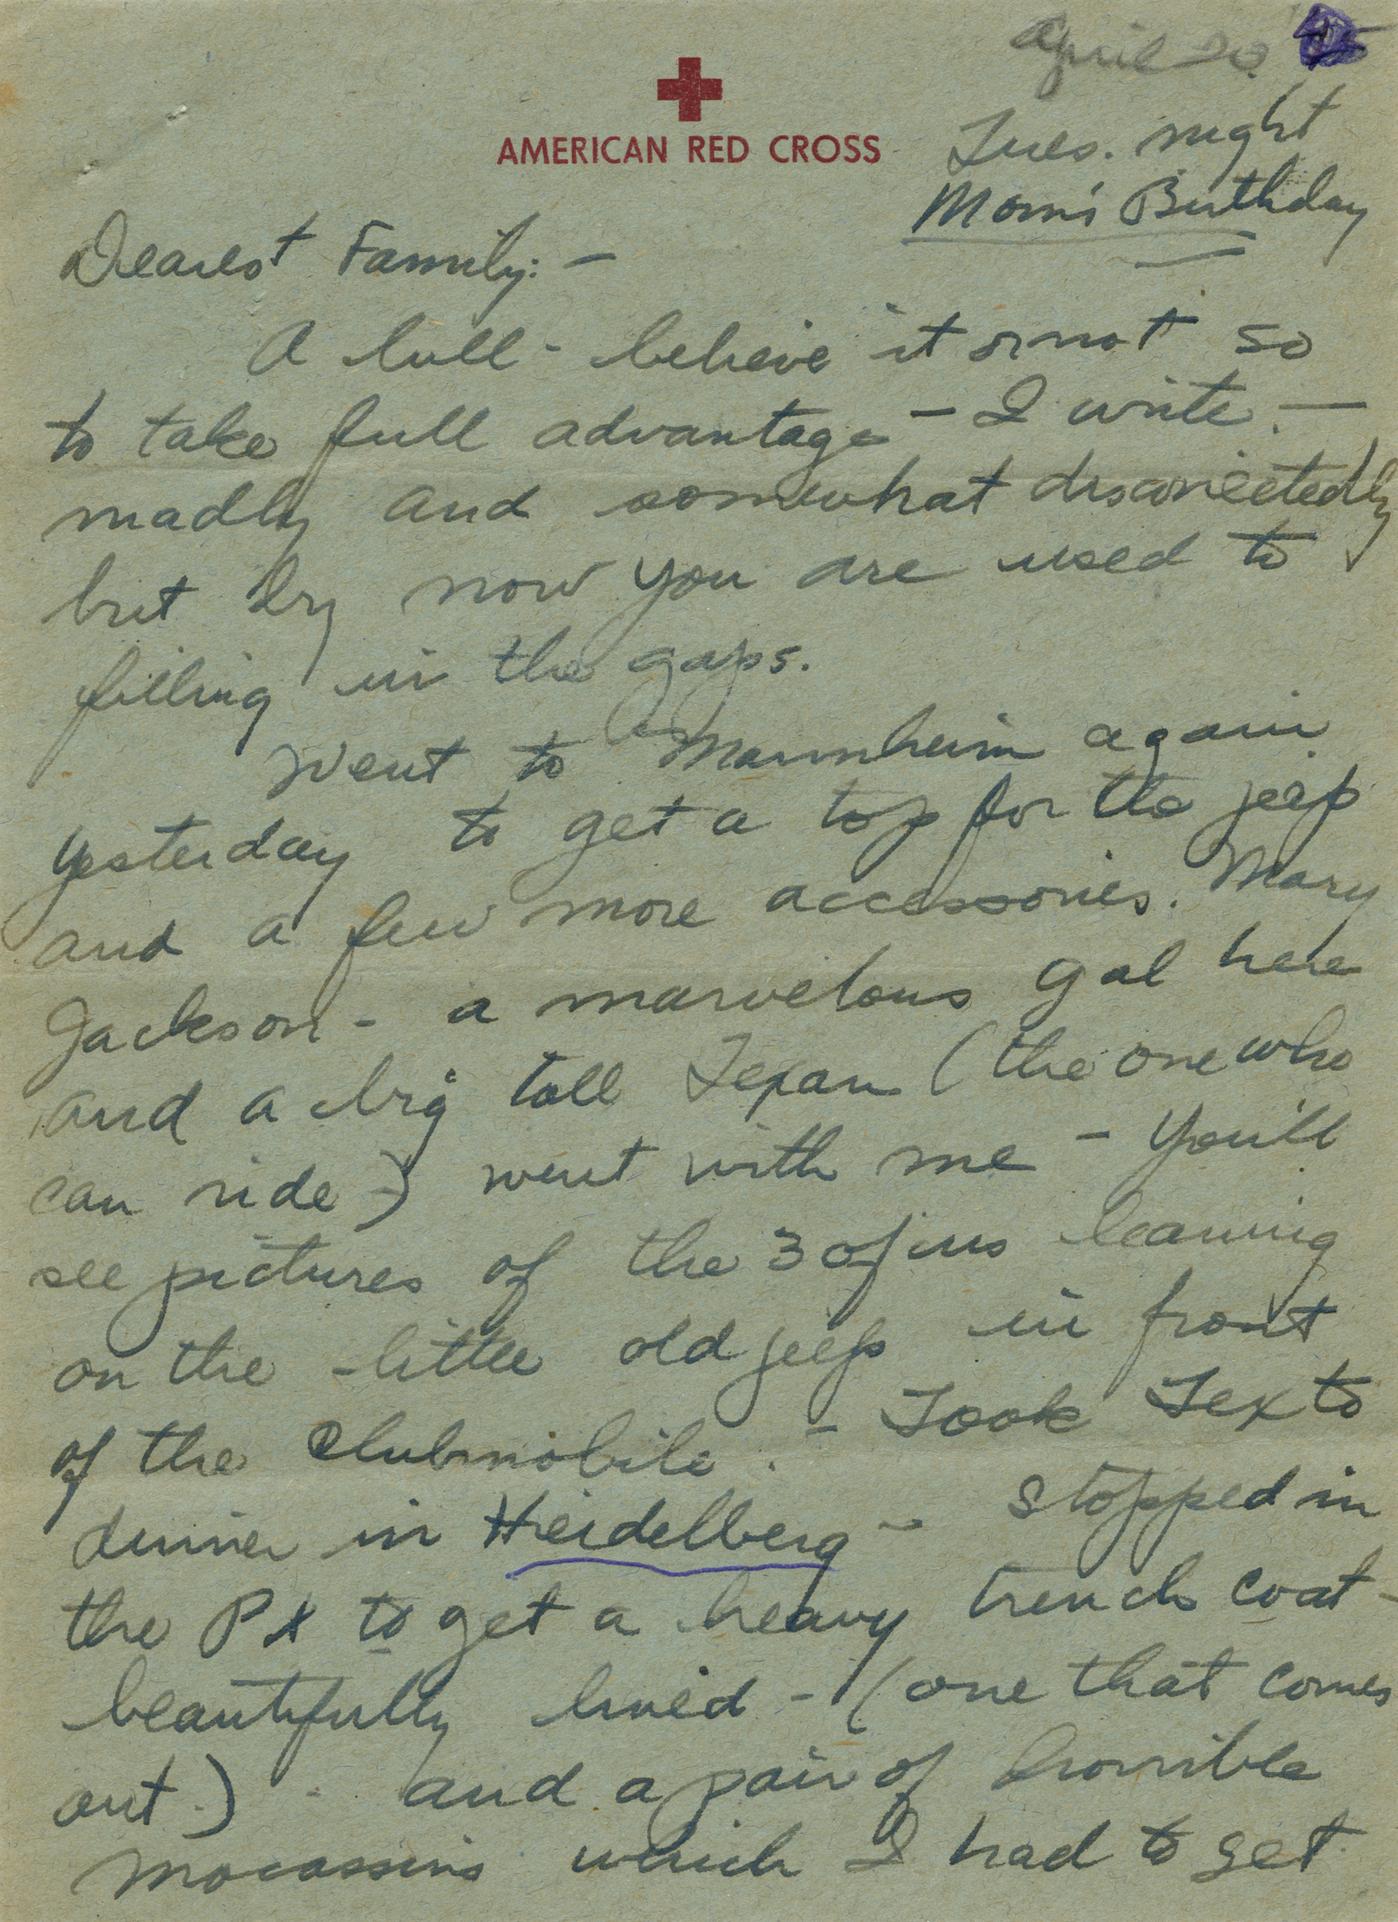 April 20
AMERICAN RED CROSS
Tues. night
Mom's Birthday
Dearest Family: -
A lull - believe it or not so
to take full advantage - I write -
madly and somewhat disconectedly
but by now you are used to
filling in the gaps.
Went to Mannheim again
yesterday to get a top for the jeep
and a few more accessories. Mary
Jackson - a marvelous gal here
and a big tall Texan (the one who
can ride -) went with me - You'll
see pictures of the 3 of us leaning
on the little old jeep in front
of the Clubmobile. - Took Tex to
dinner in Heidelberg - stopped in
the PX to get a heavy trench coat -
beautifully lined - (one that comes
out.) and a pair of horrible
mocassins which I had to get